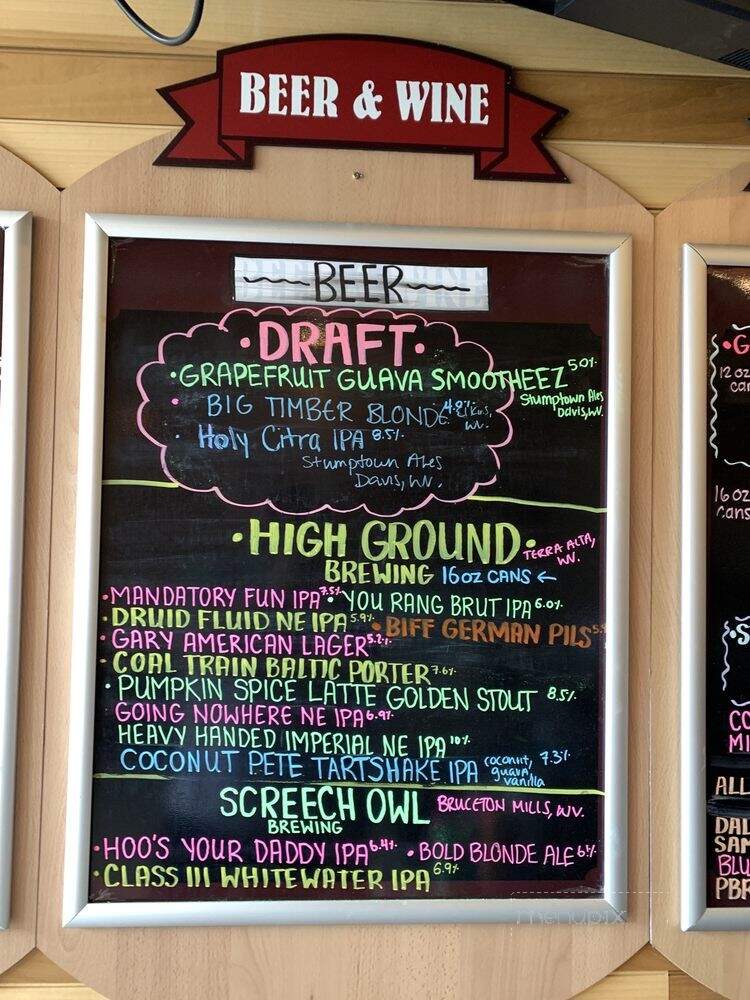 BEER & WINE
BEER
• DRAFT •
• GRAPEFRUIT GUAVA SMOOTHEEZ 5.0%
Stumptown Ales
Davis, WV.
• BIG TIMBER BLONDE 4.8% Elkins, WV.
• Holy Citra IPA 8.5%
Stumptown Ales
Davis, WV.
• HIGH GROUND •
TERRA ALTA, WV.
BREWING 16oz CANS ←
• MANDATORY FUN IPA 7.5% • YOU RANG BRUT IPA 6.0%
• DRUID FLUID NE IPA 5.9% • BIFF GERMAN PILS
• GARY AMERICAN LAGER 5.2%
• COAL TRAIN BALTIC PORTER 7.6%
• PUMPKIN SPICE LATTE GOLDEN STOUT 8.5%
GOING NOWHERE NE IPA 6.9%
HEAVY HANDED IMPERIAL NE IPA 10%
COCONUT PETE TARTSHAKE IPA coconut, guava, vanilla 7.3%
SCREECH OWL BRUCETON MILLS, WV.
BREWING
• HOO'S YOUR DADDY IPA 6.4% • BOLD BLONDE ALE 6%
• CLASS III WHITEWATER IPA 6.9%
12 oz
16 oz
cans
ALL
PBR
menupix